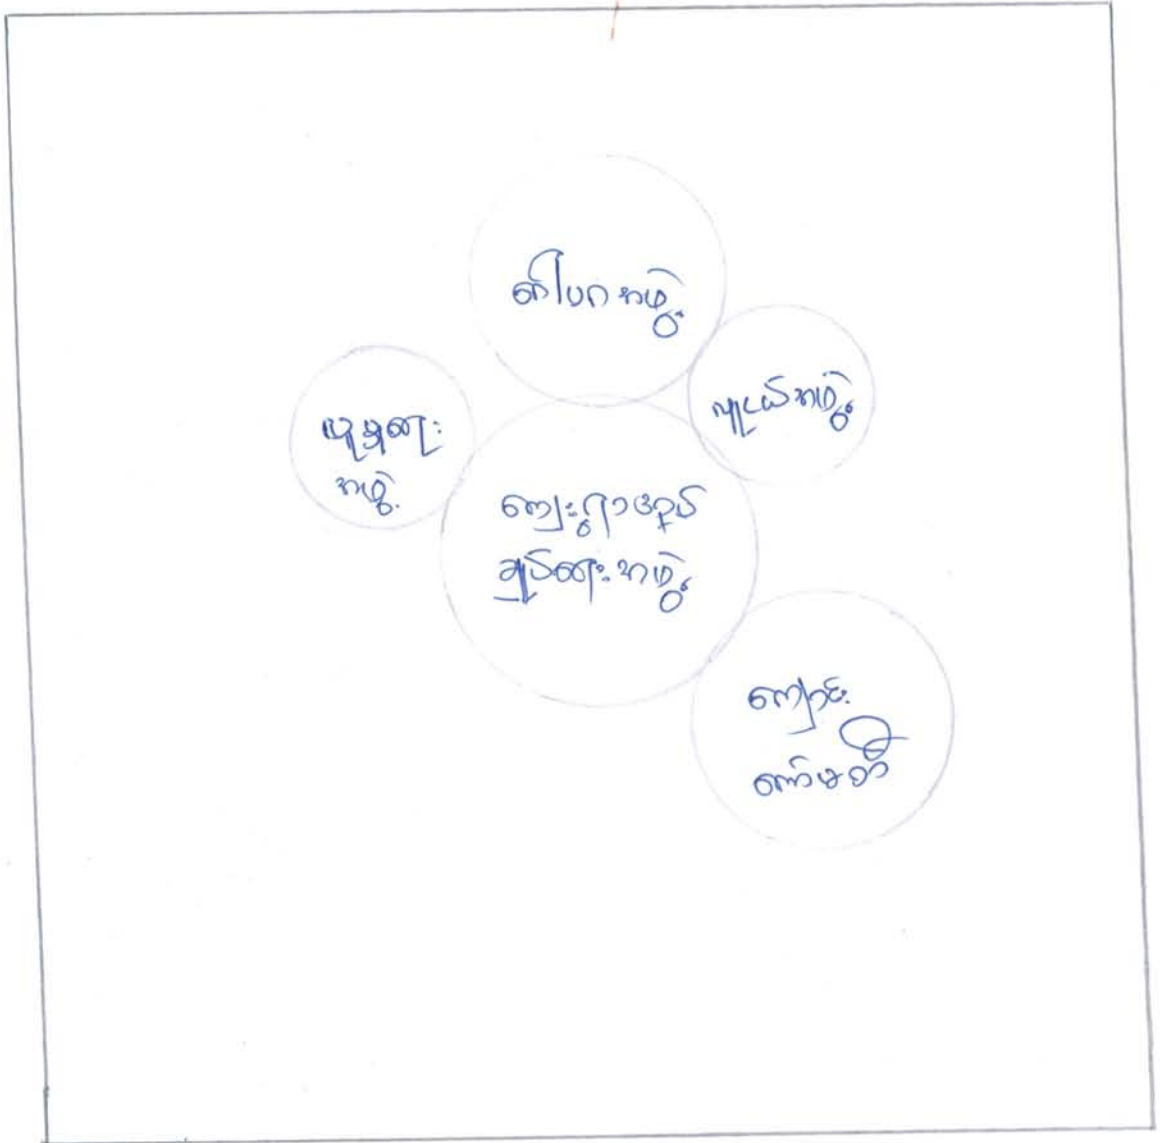 ဂေါပကအဖွဲ့
လူငယ်အဖွဲ့
လူမှုရေး
အဖွဲ့
ကျေးရွာအုပ်
ချုပ်ရေးအဖွဲ့
ကျောင်း
ကော်မတီ